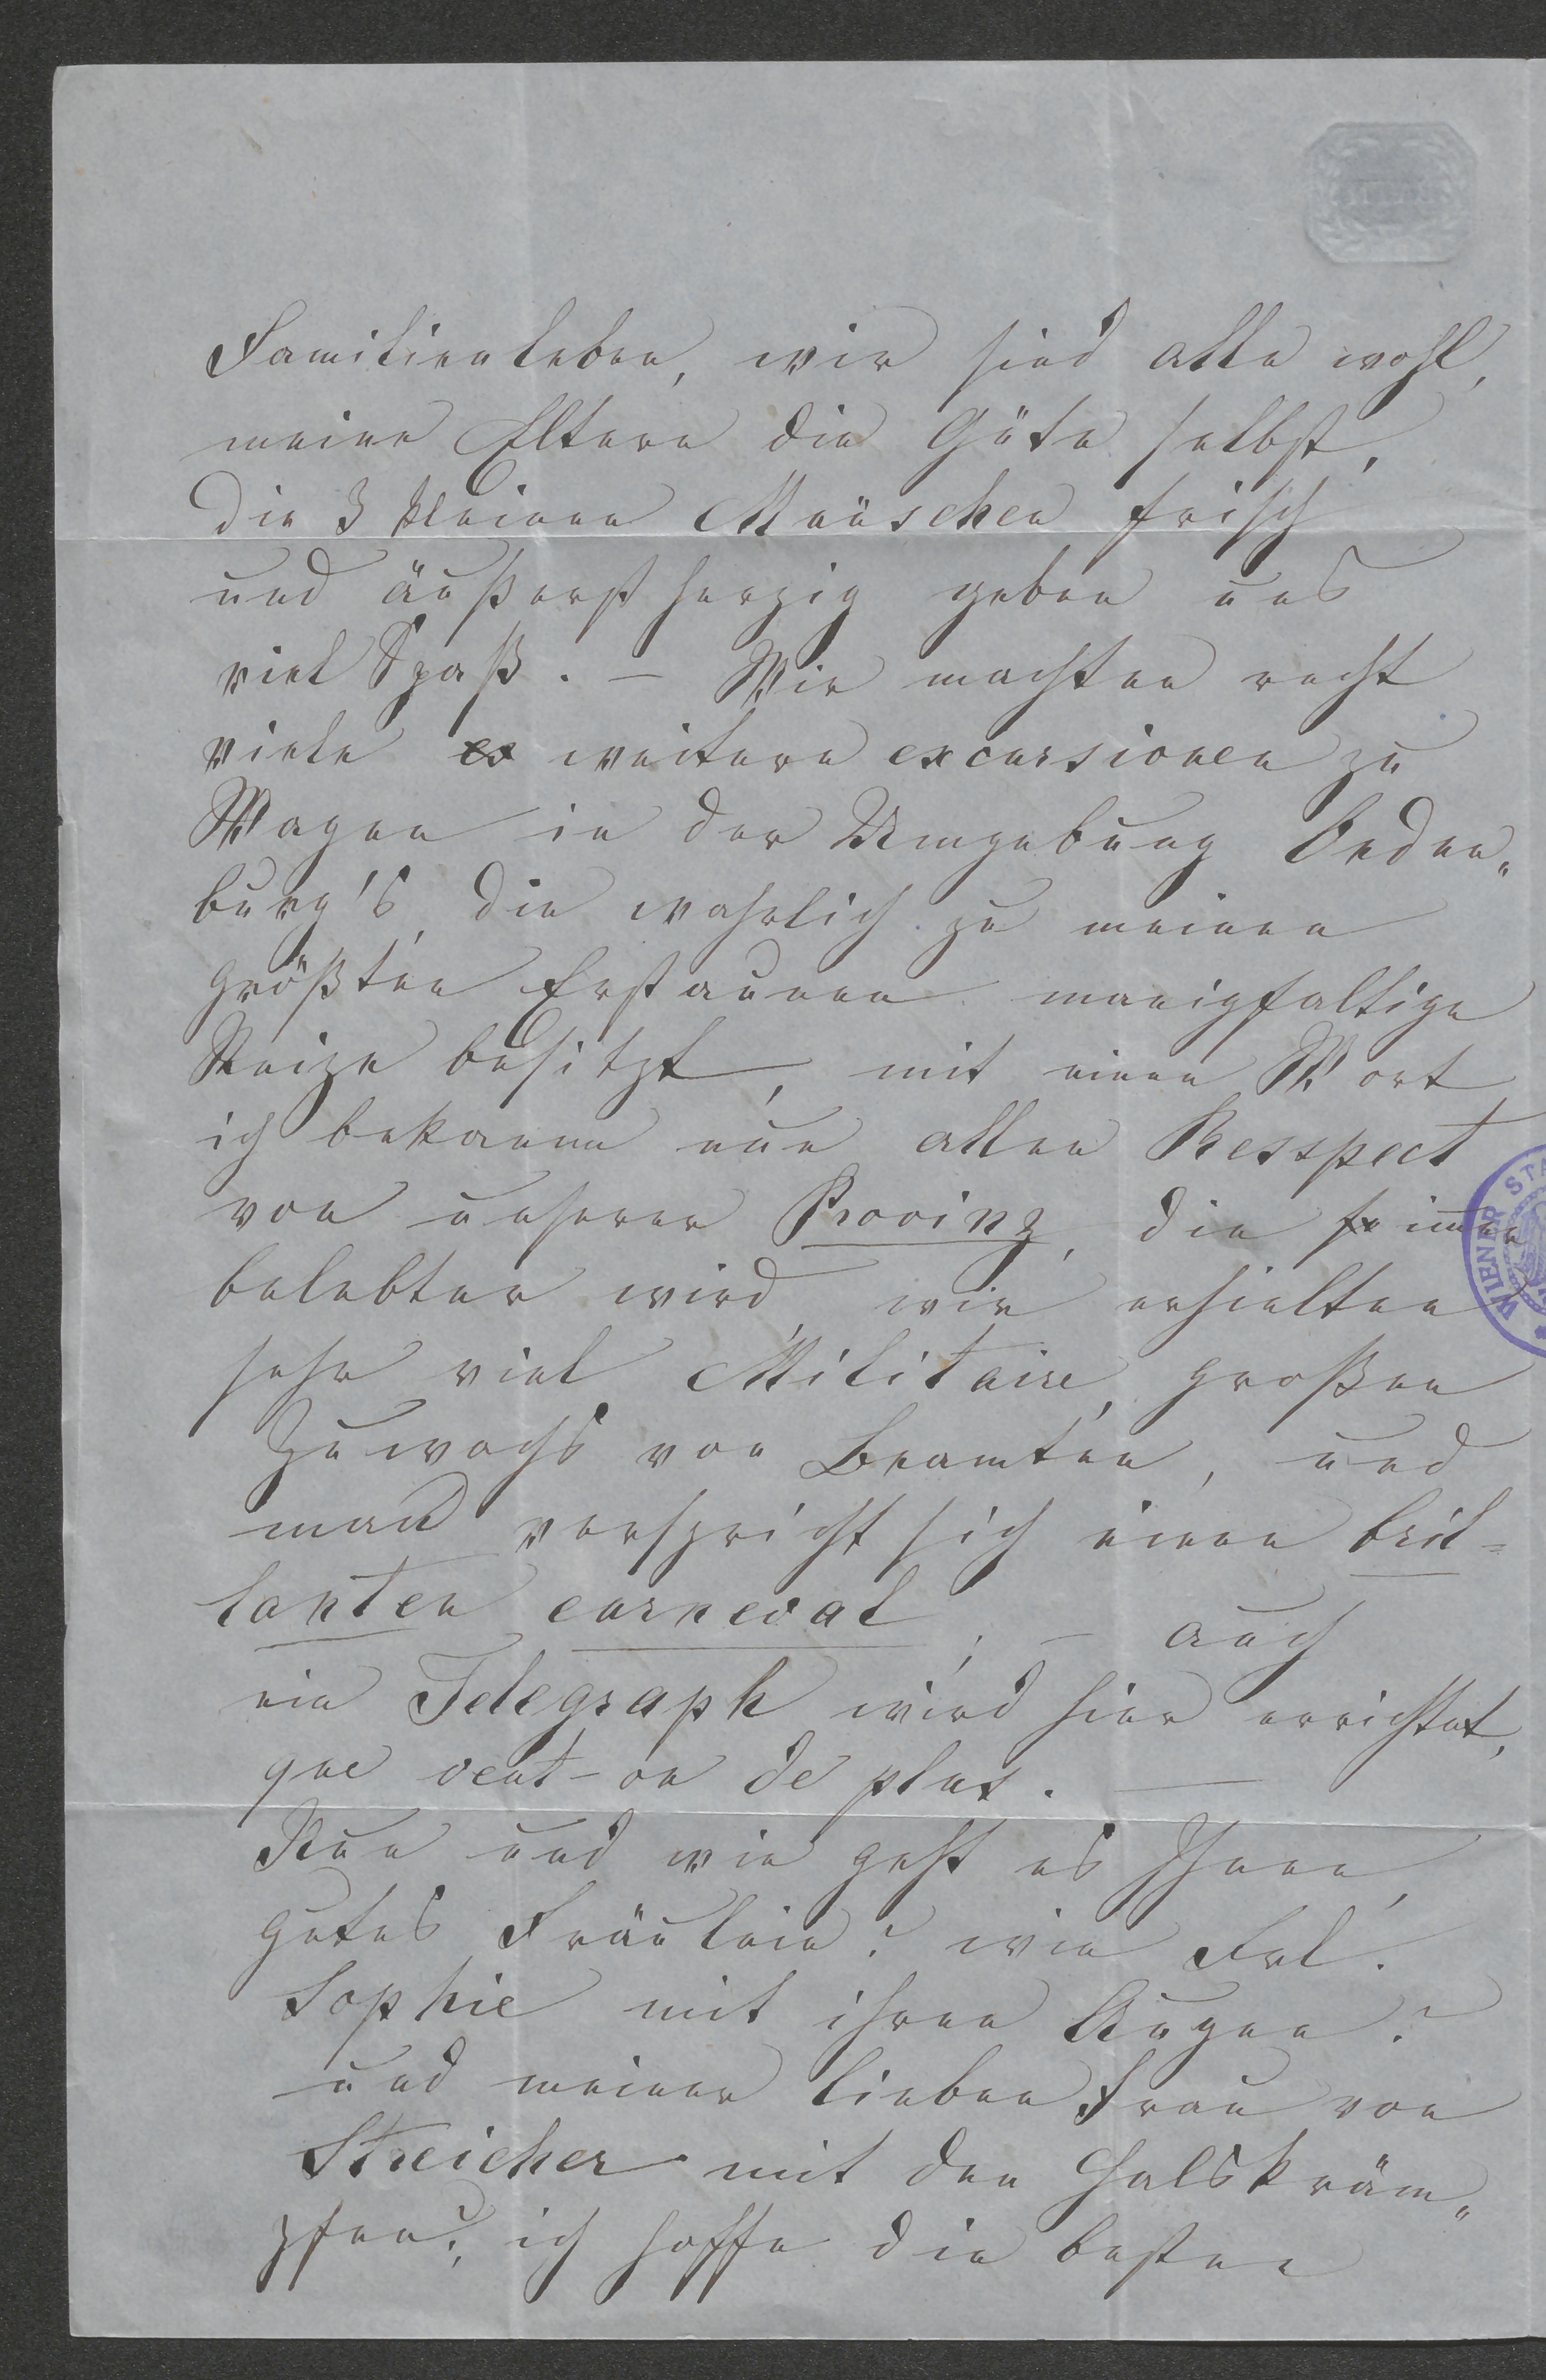 Familienleben, wir sind alle wohl,
meine Eltern die Güte selbst,
die 3 kleinen Mäuschen frisch
und äußerst herzig geben uns
viel Spaß. – Wir machten recht
viele ex weitere excursionen zu
Wagen in der Umgebung Oeden„
burg's, die wahrlich zu meinen
größten Erstaunen manigfaltige
Reize besitzt, mit einen Wort
ich bekamm nun allen Resspect
von unserer Provinz, die so immer
belebter wird, wir erhielten
sehr viel Militaire, großen
Zuwachs von Beamten, und
man verspricht sich einen bril=
lanten carneval; – auch
ein Telegraph wird hier errichtet,
que veut-on de plus. —
Nun und wie geht es Ihnen,
gutes Fräulein? wie Frl.
Sophie mit ihren Augen?
und meiner lieben Frau von
Streicher mit den Halskräm„
pfen?, ich hoffe die besten
WIENER STA